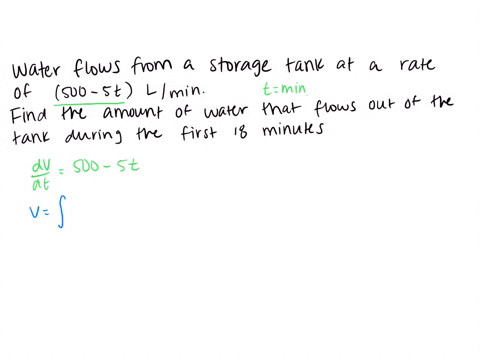 Water flows from a storage tank at a rate
of (500-5t) L/min. t=min
Find the amount of water that flows out of the
tank during the first 18 minutes
dV/dt = 500-5t
V=∫